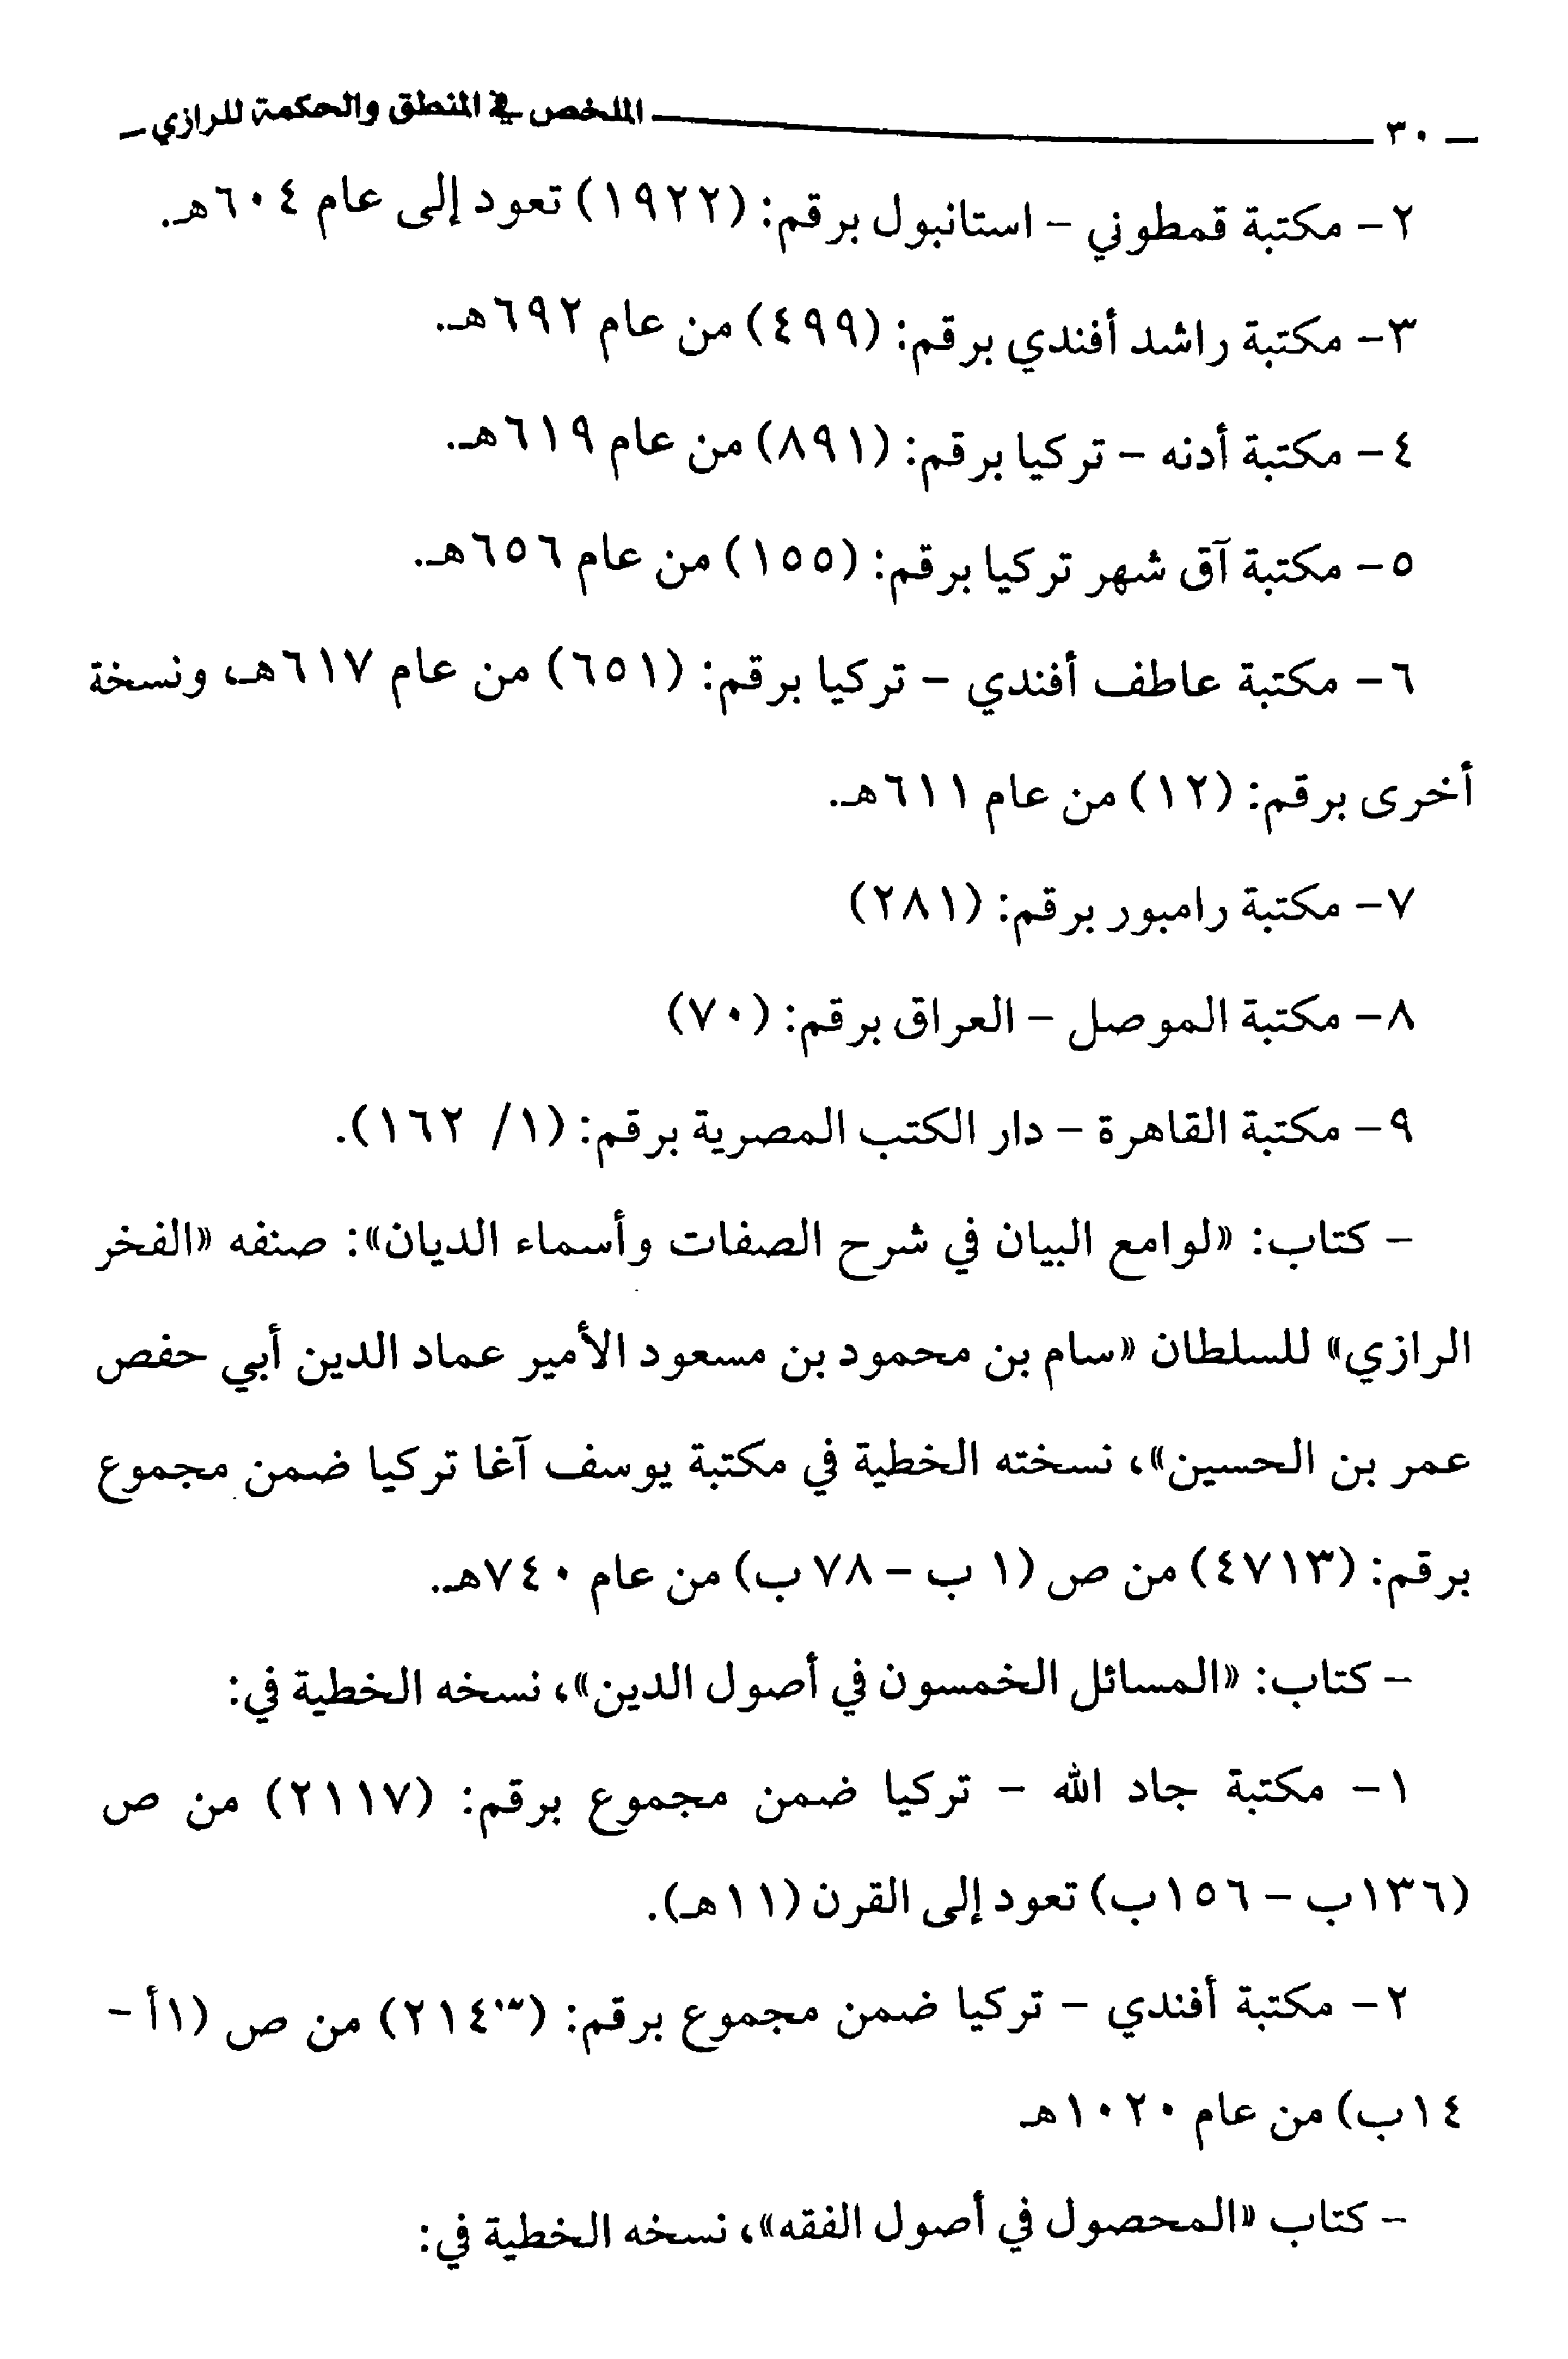 ٣٠ الملخص في المنطق والحكمة للرازي
٢- مكتبة قمطوني - استانبول برقم: (١٩٢٢) تعود إلى عام ٦٠٤هـ.
٣- مكتبة راشد أفندي برقم: (٤٩٩) من عام ٦٩٢هـ.
٤- مكتبة أدنه - تركيا برقم: (٨٩١) من عام ٦١٩هـ.
٥- مكتبة آق شهر تركيا برقم: (١٥٥) من عام ٦٥٦هـ.
٦- مكتبة عاطف أفندي - تركيا برقم: (٦٥١) من عام ٦١٧هـ، ونسخة
أخرى برقم: (١٢) من عام ٦١١هـ.
٧- مكتبة رامبور برقم: (٢٨١)
٨- مكتبة الموصل - العراق برقم: (٧٠)
٩- مكتبة القاهرة - دار الكتب المصرية برقم: (١/ ١٦٢).
- كتاب: «لوامع البيان في شرح الصفات وأسماء الديان»: صنفه «الفخر
الرازي» للسلطان «سام بن محمود بن مسعود الأمير عماد الدين أبي حفص
عمر بن الحسين»، نسخته الخطية في مكتبة يوسف آغا تركيا ضمن مجموع
برقم: (٤٧١٣) من ص (١ ب - ٧٨ب) من عام ٧٤٠هـ.
- كتاب: «المسائل الخمسون في أصول الدين»، نسخه الخطية في:
١- مكتبة جاد الله - تركيا ضمن مجموع برقم: (٢١١٧) من ص
(١٣٦ب - ١٥٦ب) تعود إلى القرن (١١هـ).
٢- مكتبة أفندي - تركيا ضمن مجموع برقم: من ص (١أ -
١٤ب) من عام ١٠٢٠هـ
- كتاب «المحصول في أصول الفقه»، نسخه الخطية في: